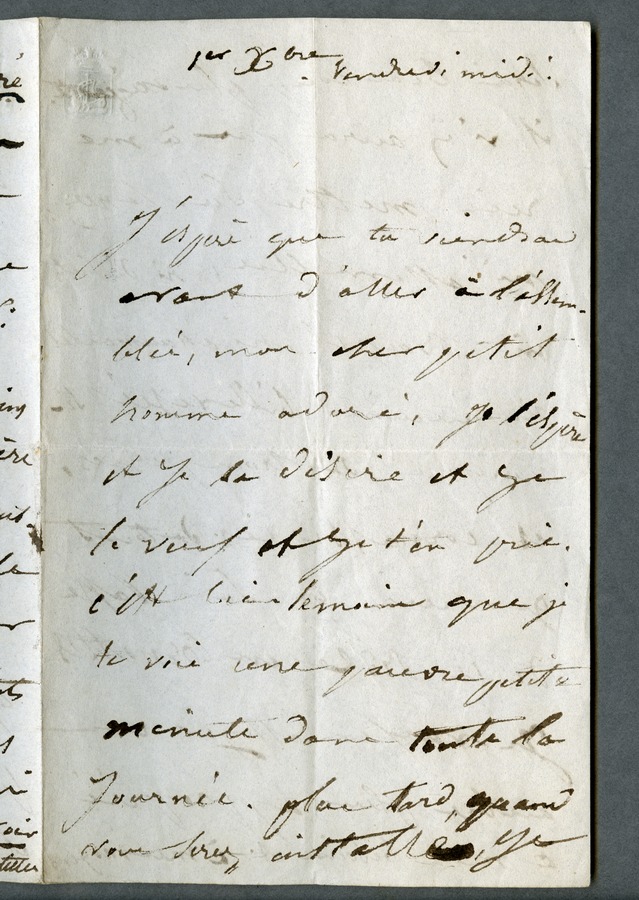 1er Xbre Vendredi midi.
J'espère que tu viendras
avant d'aller à l'assem-
blée, mon cher petit
homme adoré, je l'espère
et je le désire et je
le veux et je t'en prie.
c'est bien le moins que je
te voie une pauvre petite
minute dans toute la
journée. plus tard, quand
vous serez installés, je